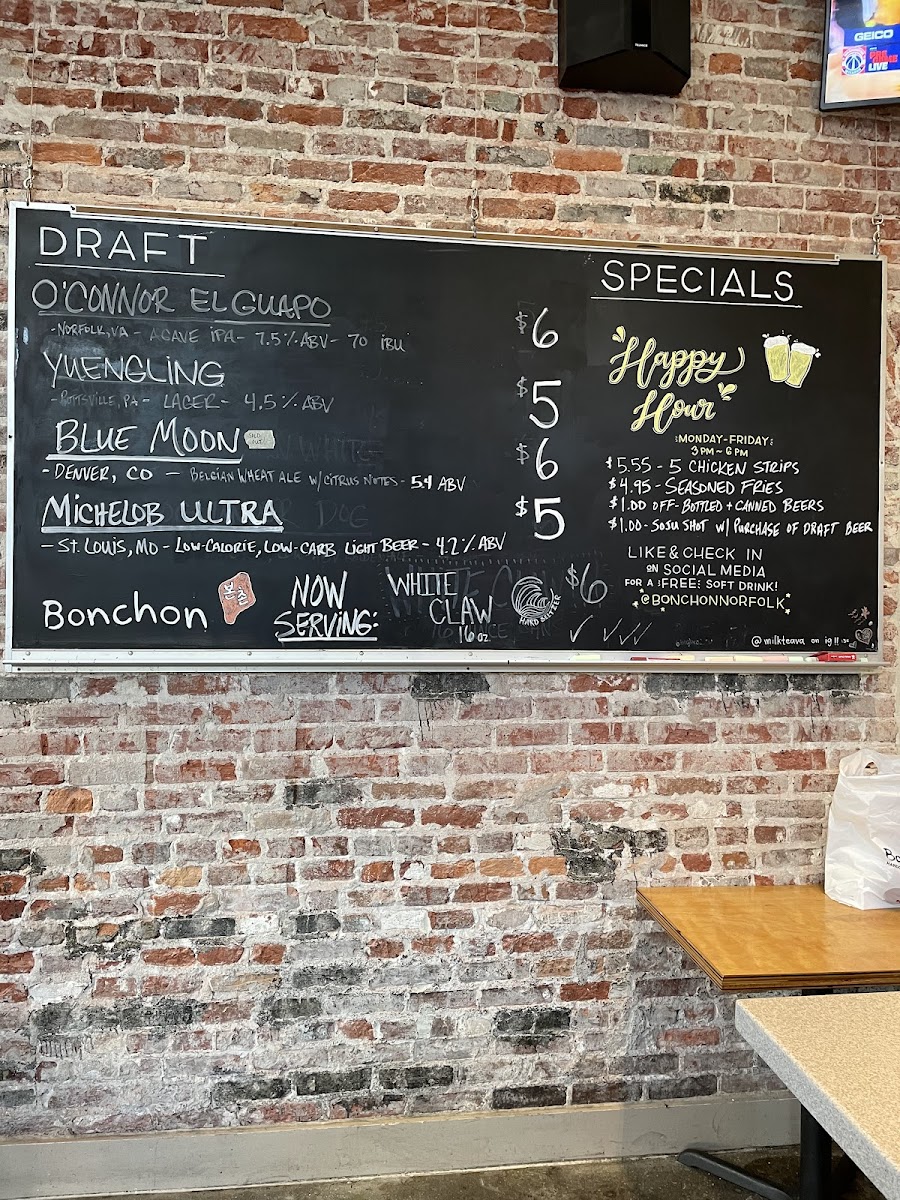 GEICO
LIVE
DRAFT
O'CONNOR EL GUAPO
$6
-NORFOLK, VA - AGAVE IPA - 7.5% ABV - 70 IBU
YUENGLING
$5
-POTTSVILLE, PA - LAGER - 4.5% ABV
BLUE MOON
SOLD OUT
$6
-DENVER, CO - BELGIAN WHEAT ALE W/ CITRUS NOTES - 5.4 ABV
MICHELOB ULTRA
$5
- ST. LOUIS, MO - LOW-CALORIE, LOW-CARB LIGHT BEER - 4.2% ABV
Bonchon
본촌
NOW
SERVING:
WHITE
CLAW
16 oz
HARD SELTZER
$6
SPECIALS
Happy
Hour
MONDAY-FRIDAY
3PM-6PM
$5.55 - 5 CHICKEN STRIPS
$4.95 - SEASONED FRIES
$1.00 OFF - BOTTLED + CANNED BEERS
$1.00 - SOJU SHOT W/ PURCHASE OF DRAFT BEER
LIKE & CHECK IN
ON SOCIAL MEDIA
FOR A FREE SOFT DRINK!
@BONCHONNORFOLK
@milkteava on ig!!
Bo